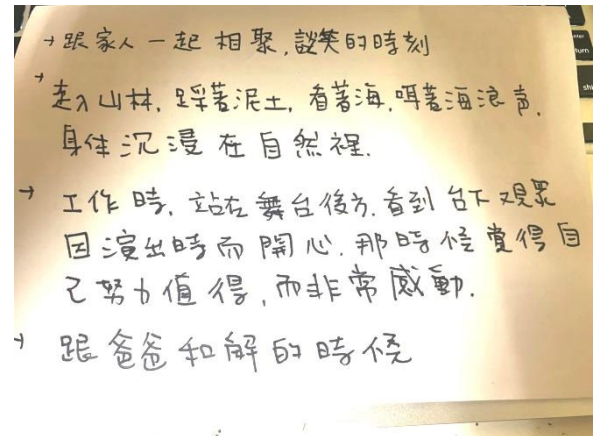 →跟家人一起相聚,談笑的時刻
→走入山林,踩著泥土,看著海,聽著海浪声,
身体沉浸在自然裡.
→工作時,站在舞台後方,看到台下观眾
因演出時而開心.那時候覺得自
己努力值得,而非常感動.
→跟爸爸和解的時候